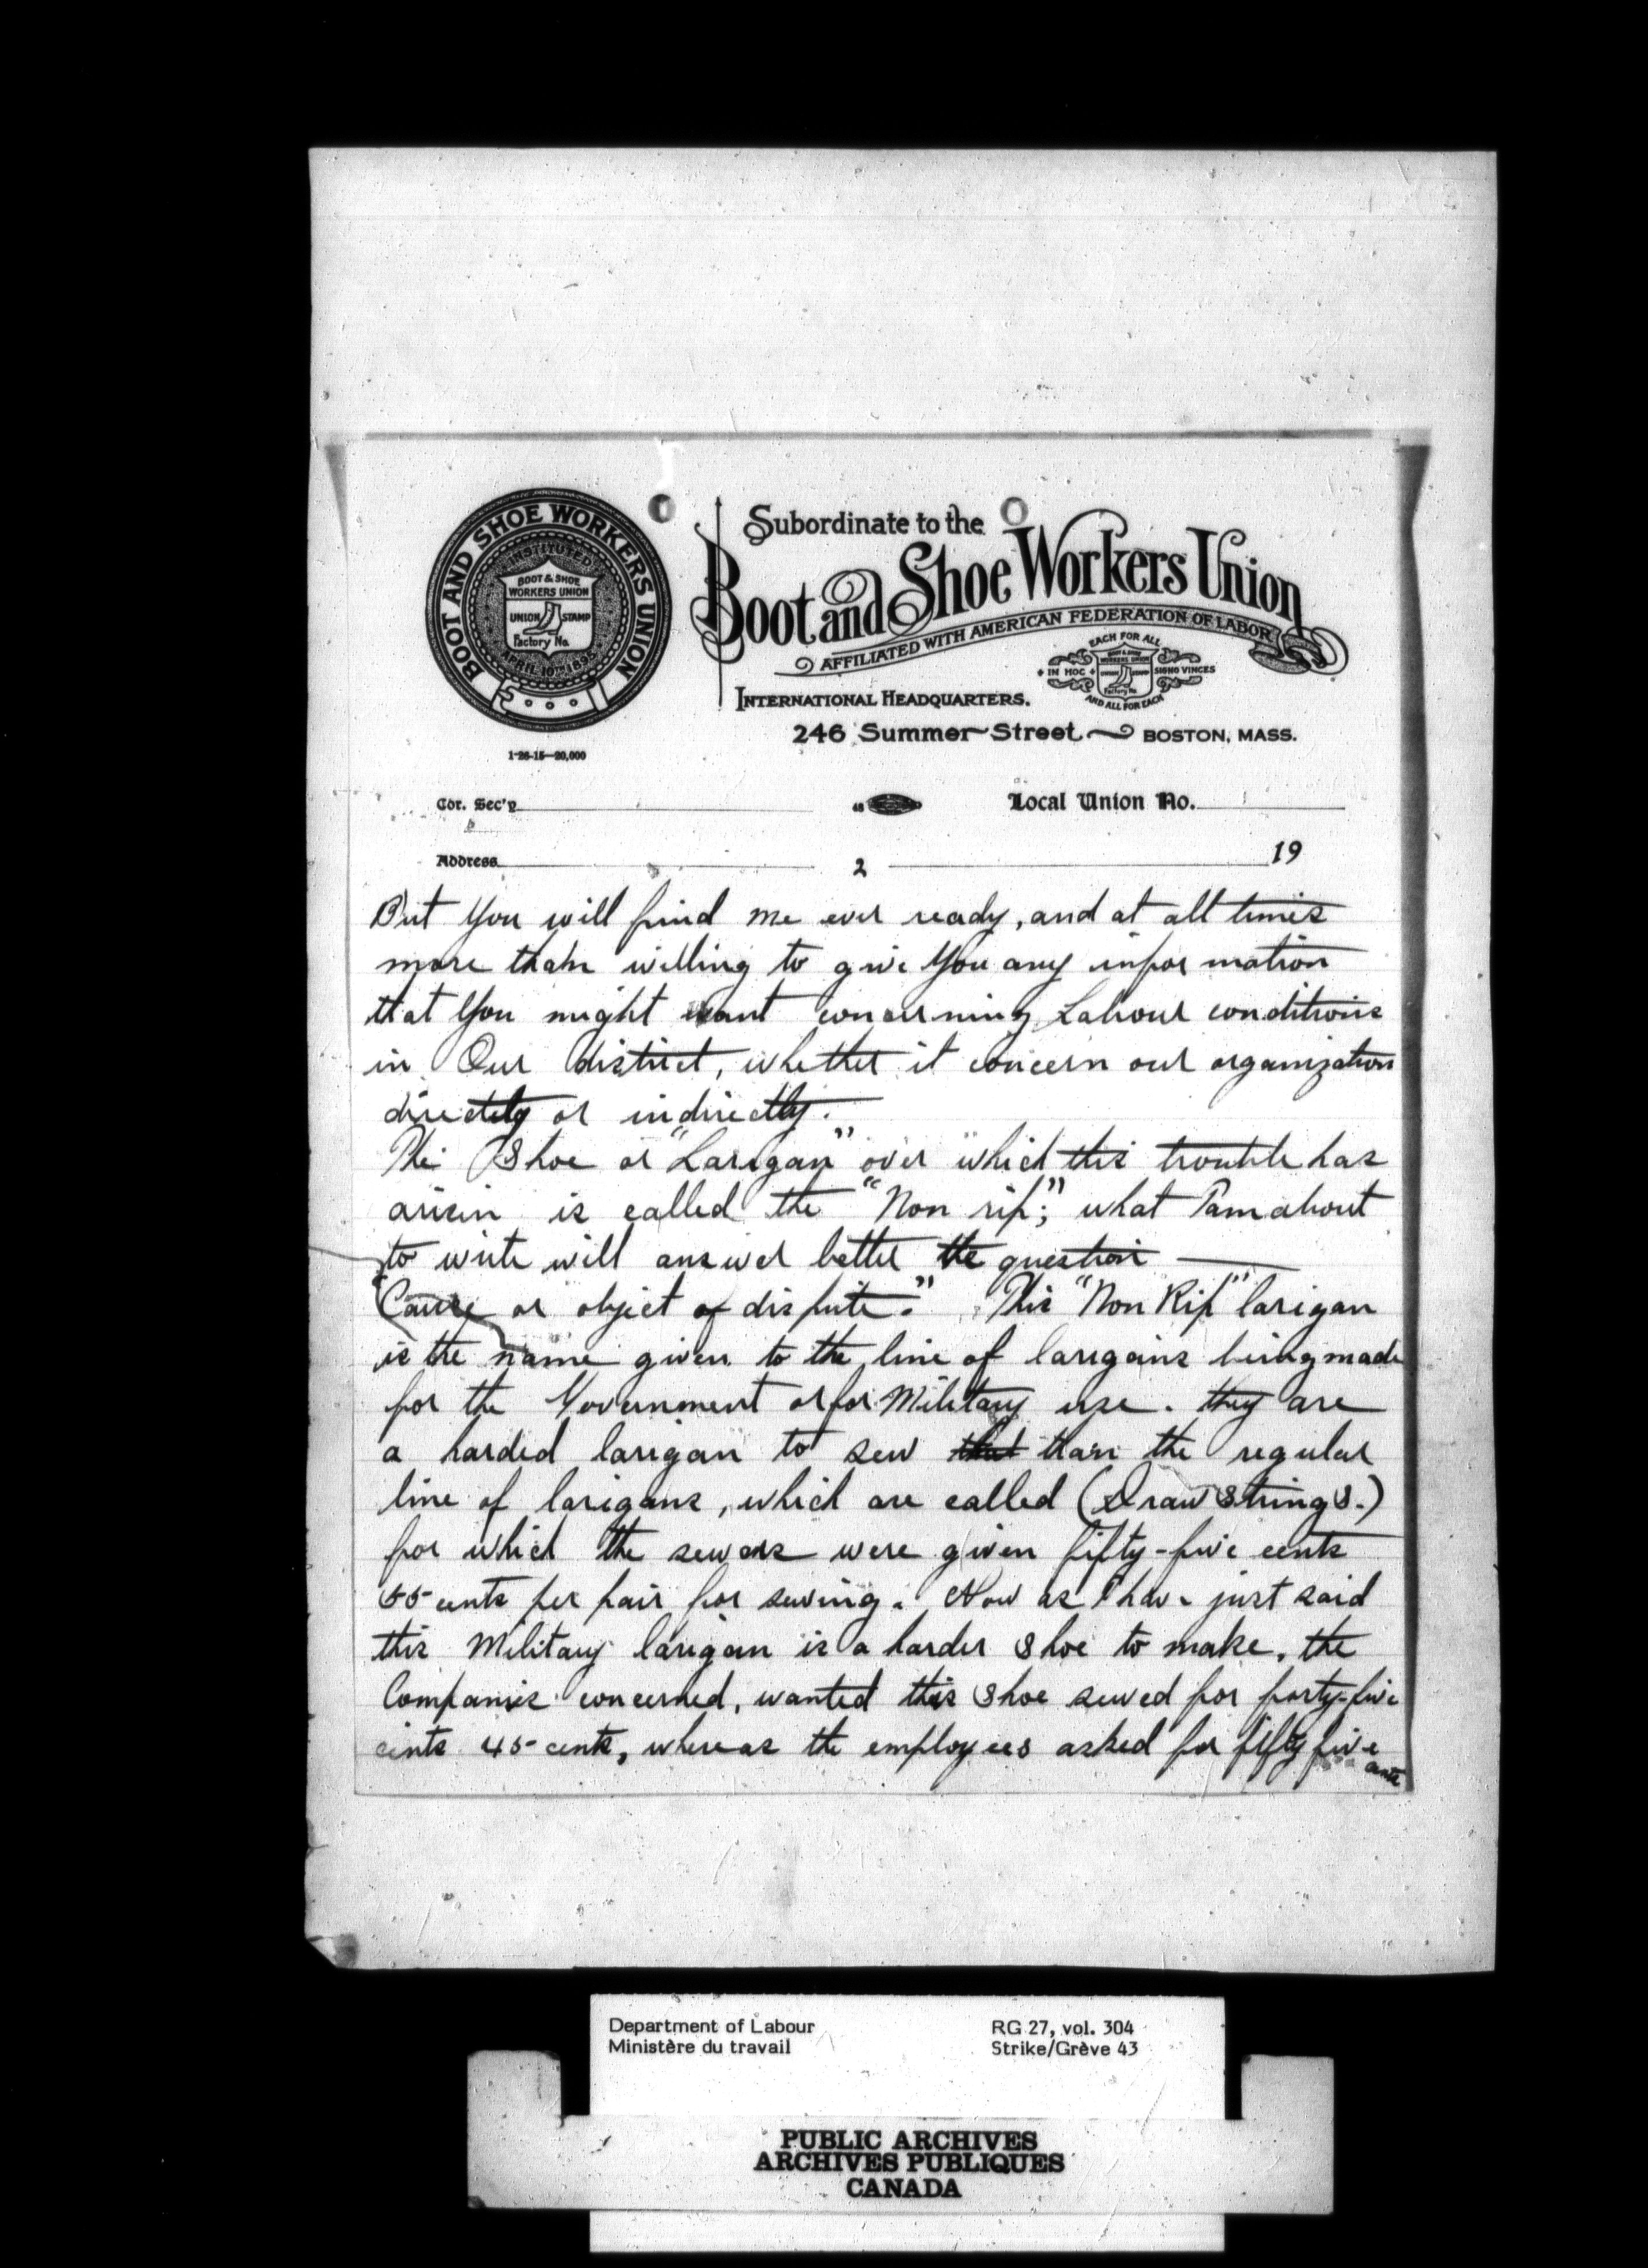 BOOT AND SHOE WORKERS UNION
INSTITUTED
BOOT & SHOE
WORKERS UNION
UNION STAMP
Factory No.
APRIL 10TH 1895
1-26-15—20,000
Subordinate to the
Boot and Shoe Workers Union
AFFILIATED WITH AMERICAN FEDERATION OF LABOR
EACH FOR ALL
BOOT & SHOE
WORKERS UNION
IN HOC SIGNO VINCES
UNION STAMP
Factory No.
AND ALL FOR EACH
INTERNATIONAL HEADQUARTERS.
246 Summer Street BOSTON, MASS.
Cor. Sec'y Local Union No.
Address 2 19
But You will find me ever ready, and at all times
more than willing to give You any information
that You might want concerning Labour conditions
in Our district, whether it concern our organization
directely or indirectly.
The Shoe or "Larigan" over which this trouble has
arisen is called the "Non rip;" what I am about
to write will answer better the question —
"Cause or object of dispute." This "Non Rip" larigan
is the name given to the line of larigans being made
for the Government or for Military use. they are
a harded larigan to sew that than the regular
line of larigans, which are called (Draw Strings.)
for which the sewers were given fifty-five cents
55 cents per pair for sewing. Now as I have just said
this Military larigan is a harder shoe to make, the
Companies concerned, wanted this shoe sewed for forty-five
cents 45 cents, whereas the employees asked for fifty five
cents
Department of Labour RG 27, vol. 304
Ministère du travail Strike/Grève 43
PUBLIC ARCHIVES
ARCHIVES PUBLIQUES
CANADA